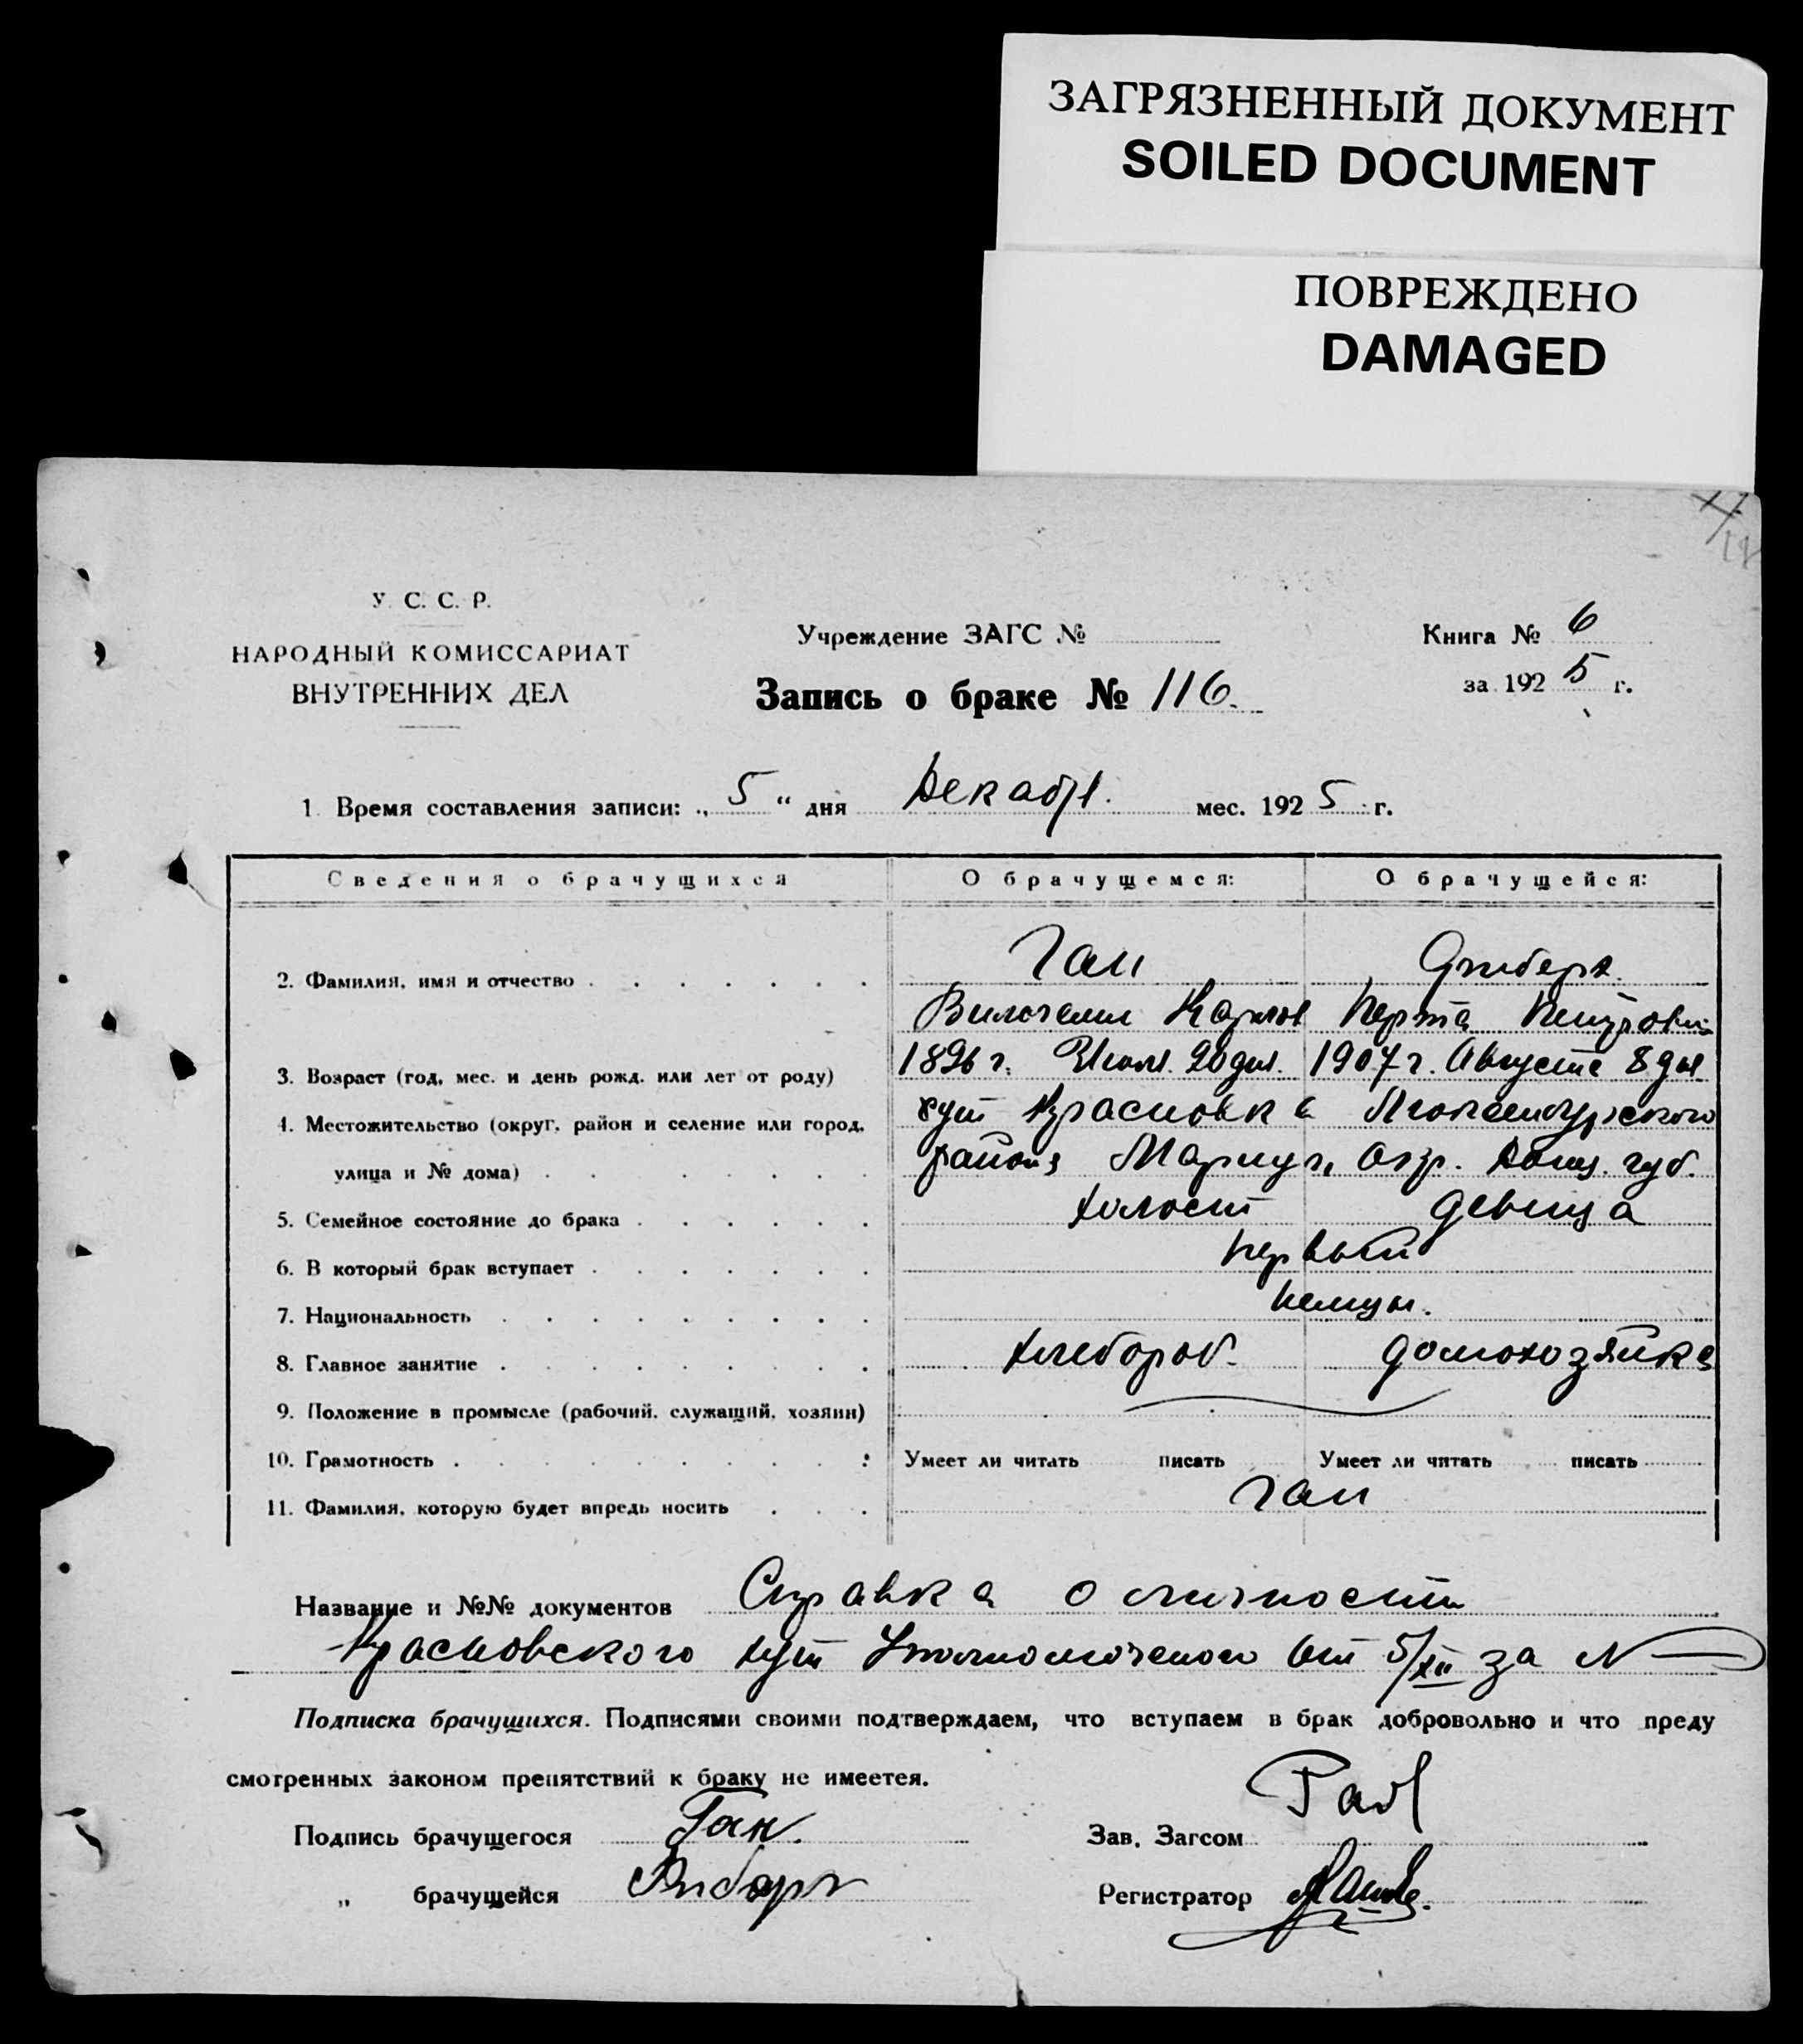 ЗАГРЯЗНЕННЫЙ ДОКУМЕНТ
SOILED DOCUMENT
ПОВРЕЖДЕНО
DAMAGED
У. С. С. Р.
НАРОДНЫЙ КОМИССАРИАТ
ВНУТРЕННИХ ДЕЛ
Учреждение ЗАГС №
Запись о браке № 116.
Книга № 6
за 1925 г.
1. Время составления записи: „5“ дня Декабря. мес. 1925 г.
Сведения о брачущихся О брачущемся: О брачущейся:
2. Фамилия, имя и отчество Ган
Вильгельм Карлов
3. Возраст (год, мес. и день рожд. или лет от роду) 1896 г. Июля 20 дня. 1907 г. Августа 8 дня
4. Местожительство (округ, район и селение или город, хут Красновка
улица и № дома) района Мариуп. Окр. Донец. губ.
5. Семейное состояние до брака холост девица
6. В который брак вступает первый
7. Национальность немцы.
8. Главное занятие хлебороб. домохозяйка
9. Положение в промысле (рабочий, служащий, хозяин)
10. Грамотность Умеет ли читать писать Умеет ли читать писать
11. Фамилия, которую будет впредь носить Ган
Название и №№ документов Справка о личности
Красновского хут Уполномоченого от 5/XII за N —
Подписка брачущихся. Подписями своими подтверждаем, что вступаем в брак добровольно и что преду
смотренных законом препятствий к браку не имеется.
Подпись брачущегося Ган. Зав. Загсом
„ брачущейся Регистратор